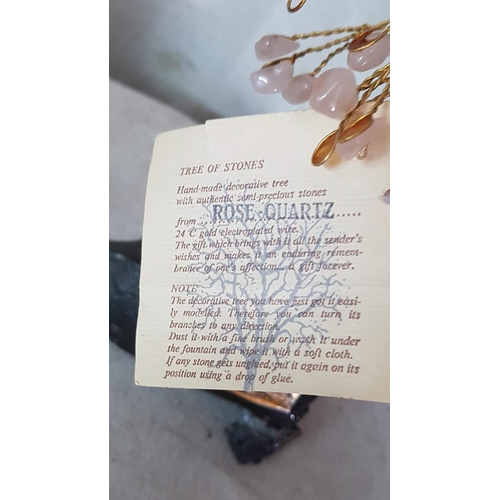 TREE OF STONES
Hand-made decorative tree
with authentic semi-precious stones
from ... ROSE-QUARTZ .....
24 C gold electroplated wire.
The gift which brings with it all the sender's
wishes and makes it an enduring remem-
brance of one's affection... a gift forever.
NOTE
The decorative tree you have just got it easi-
ly modelled. Therefore you can turn its
branches to any direction.
Dust it with a fine brush or wash it under
the fountain and wipe it with a soft cloth.
If any stone gets unglued, put it again on its
position using a drop of glue.